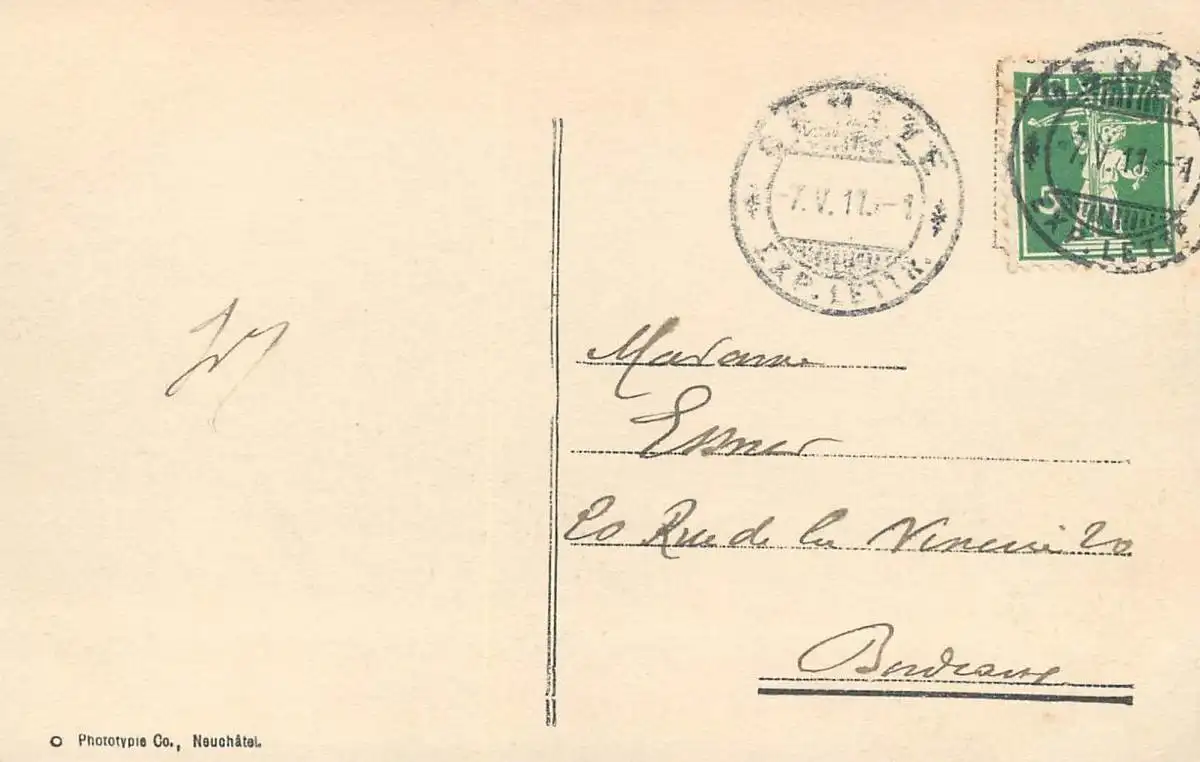 GENÈVE
-7.V.11.-1
EXP. LETTR.
HELVETIA
5
-7.V.11.-1
EXP. LETTR.
Madame
Essner
20 Rue de la Vinerie 20
Bordeaux
Phototypie Co., Neuchâtel.